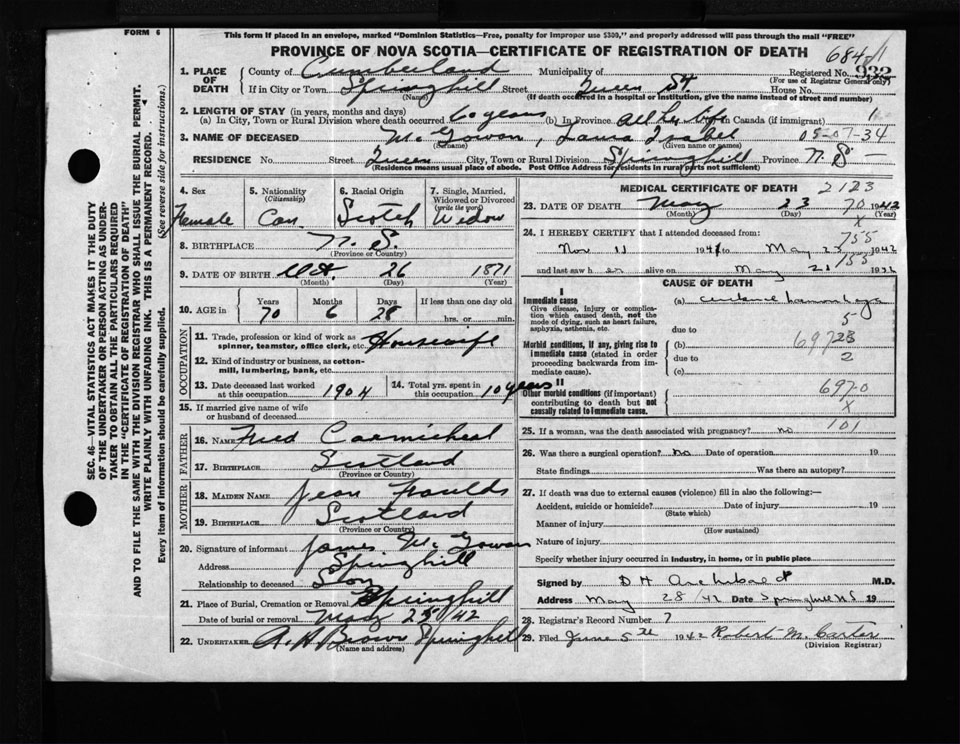 FORM 6
This form if placed in an envelope, marked "Dominion Statistics—Free, penalty for improper use $300," and properly addressed will pass through the mail "FREE"
PROVINCE OF NOVA SCOTIA—CERTIFICATE OF REGISTRATION OF DEATH
684
1. PLACE OF DEATH
County of Cumberland Municipality of Registered No. 932
(For use of Registrar General only)
If in City or Town Springhill Street Queen St. House No.
(Name) (If death occurred in a hospital or institution, give the name instead of street and number)
2. LENGTH OF STAY (in years, months and days)
(a) In City, Town or Rural Division where death occurred 60 years (b) In Province All her life in Canada (if immigrant)
3. NAME OF DECEASED McGowan, Laura Isabel 05-07-34
(Surname) (Given name or names)
RESIDENCE No. Street Queen City, Town or Rural Division Springhill Province N.S.
(Residence means usual place of abode. Post Office Address for residents in rural parts not sufficient)
4. Sex Female
5. Nationality (Citizenship) Can.
6. Racial Origin Scotch
7. Single, Married, Widowed or Divorced (write the word) Widow
8. BIRTHPLACE N.S.
(Province or Country)
9. DATE OF BIRTH Oct. 26 1871
(Month) (Day) (Year)
10. AGE Years 70 Months 6 Days 28 If less than one day old hrs. or min.
OCCUPATION
11. Trade, profession or kind of work as spinner, teamster, office clerk, etc. Housewife
12. Kind of industry or business, as cotton-mill, lumbering, bank, etc.
13. Date deceased last worked at this occupation 1904
14. Total yrs. spent in this occupation 10 years
15. If married give name of wife or husband of deceased
FATHER
16. NAME Fred Carmicheal
17. BIRTHPLACE Scotland
(Province or Country)
MOTHER
18. MAIDEN NAME Jean Foulds
19. BIRTHPLACE Scotland
(Province or Country)
20. Signature of informant James McGowan
Address Springhill
Relationship to deceased Son
21. Place of Burial, Cremation or Removal Springhill
Date of burial or removal May 25/42
22. UNDERTAKER A.H. Brown Springhill
(Name and address)
MEDICAL CERTIFICATE OF DEATH 2123
23. DATE OF DEATH May 23 1942
(Month) (Day) (Year)
70
x
24. I HEREBY CERTIFY that I attended deceased from:
755
Nov 11 1941 to May 23 1942
755
and last saw h er alive on May 21 1942
CAUSE OF DEATH
I
Immediate cause
Give disease, injury or complication which caused death, not the mode of dying, such as heart failure, asphyxia, asthenia, etc.
(a)
5
due to
Morbid conditions, if any, giving rise to immediate cause (stated in order proceeding backwards from immediate cause).
(b) 69723
due to 2
(c)
II
Other morbid conditions (if important) contributing to death but not causally related to immediate cause.
6970
x
25. If a woman, was the death associated with pregnancy? no 101
26. Was there a surgical operation? No Date of operation 19
State findings Was there an autopsy?
27. If death was due to external causes (violence) fill in also the following:—
Accident, suicide or homicide? Date of injury 19
(State which)
Manner of injury
(How sustained)
Nature of injury
Specify whether injury occurred in industry, in home, or in public place
Signed by D H Archibald M.D.
Address May 28/42 Date Springhill N.S. 19
28. Registrar's Record Number 7
29. Filed June 5th 1942 Robert M. Carter
(Division Registrar)
SEC. 46—VITAL STATISTICS ACT MAKES IT THE DUTY
OF THE UNDERTAKER OR PERSON ACTING AS UNDER-
TAKER TO OBTAIN ALL THE PARTICULARS REQUIRED
IN THE "CERTIFICATE OF REGISTRATION OF DEATH"
AND TO FILE THE SAME WITH THE DIVISION REGISTRAR WHO SHALL ISSUE THE BURIAL PERMIT.
WRITE PLAINLY WITH UNFADING INK. THIS IS A PERMANENT RECORD.
Every item of information should be carefully supplied. (See reverse side for instructions.)